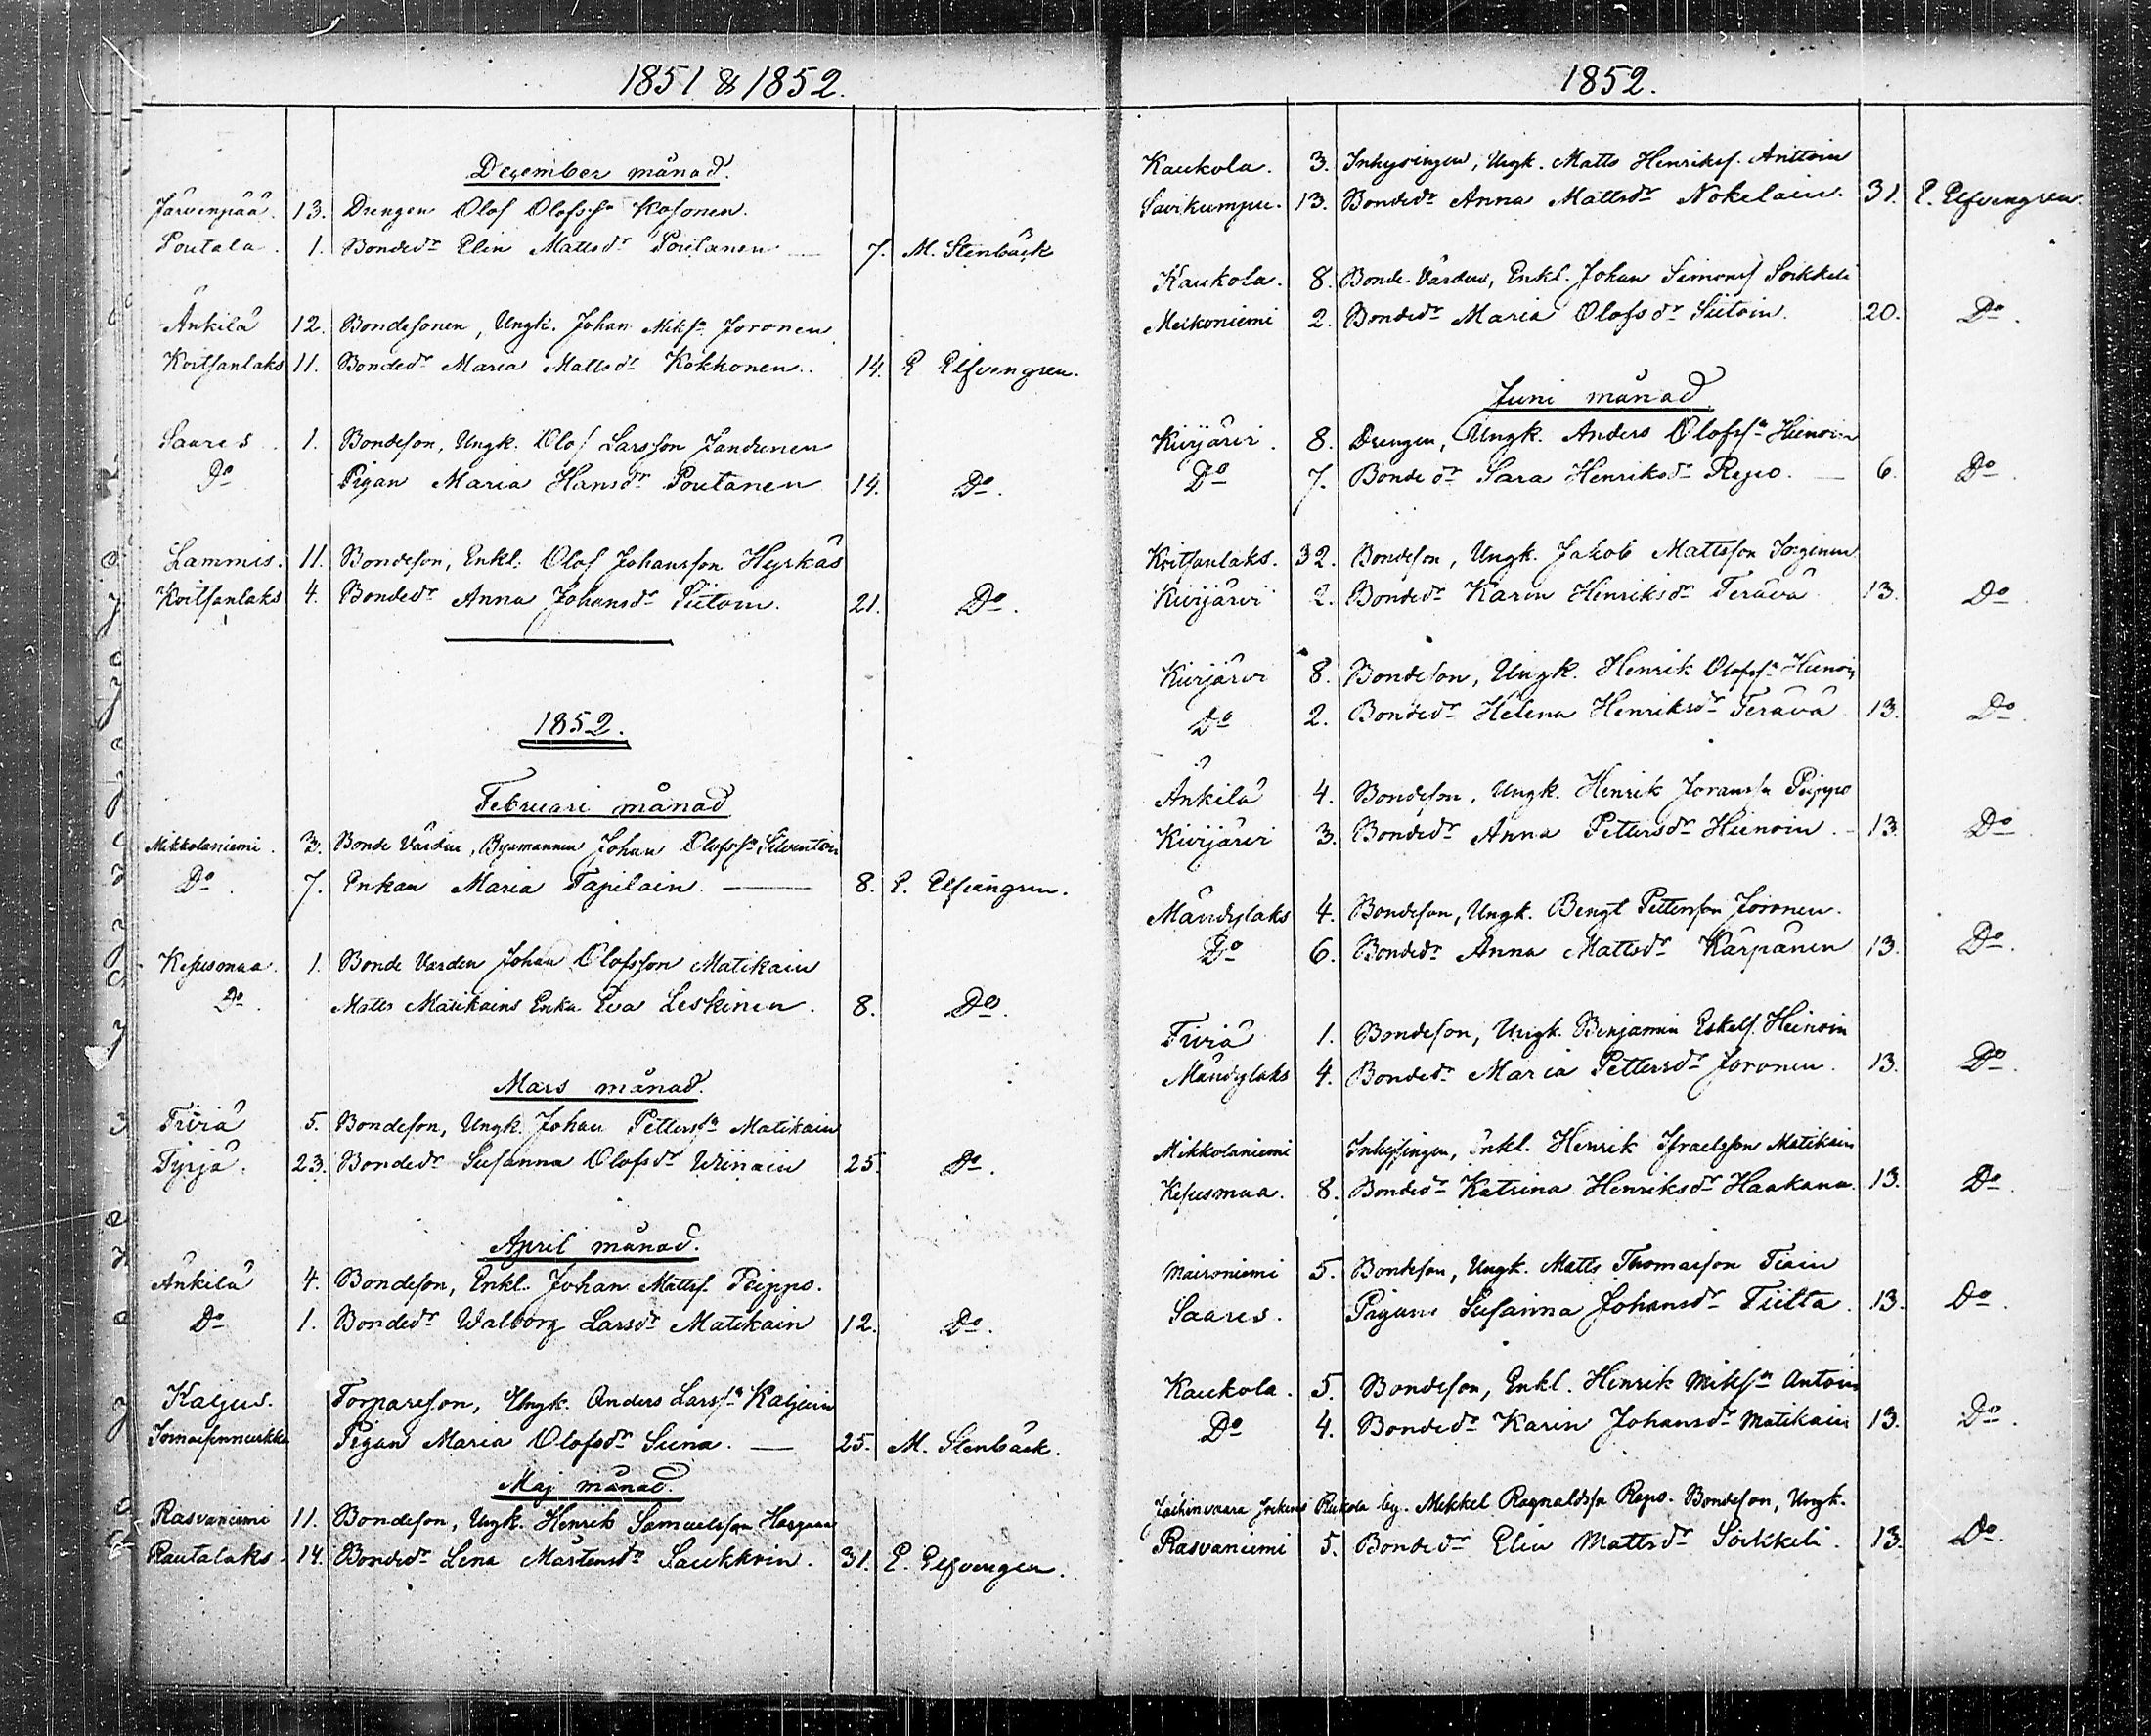 1851 & 1852.
December månad.
Järvenpää. 13. Drengen Olof Olofss:n Kosonen.
Poutala. 1. Bondedr Elin Mattsdr Poutanen — 7. M. Stenbäck
Änkilä 12. Bondesonen, Ungk. Johan Miks:n Joronen
Koitsanlaks 11. Bondedr Maria Mattsdr Kokkonen. 14. E Elfvengren.
Saares 1. Bondeson, Ungk. Olof Larsson Jandunen
Do Pigan Maria Hansdr Poutanen 14. Do.
Lammis. 11. Bondeson, Enkl. Olof Johansson Hyrkäs
Koitsanlaks 4. Bondedr Anna Johansdr Piitoin. 21. Do.
1852.
Februari månad
Mikkolaniemi. 3. Bonde Värden, Bysmannen Johan Olofss:n Silventoin
Do. 7. Enkan Maria Tapilain. — 8. E. Elfvengren.
Kesusmaa. 1. Bonde Värden Johan Olofsson Matikain
Do. Matts Matikains Enka Eva Leskinen. 8. Do.
Mars månad.
Tiviä 5. Bondeson, Ungk. Johan Petterss:n Matikain
Tyrjä. 23. Bondedr Susanna Olofsdr Wiinain 25. Do.
April månad.
Änkilä 4. Bondeson, Enkl. Johan Mattss. Peippo.
Do 1. Bondedr Walborg Larsdr Matikain 12. Do.
Kaljus. Torpareson, Ungk. Anders Larss:n Kaljuin
Pigan Maria Olofsdr Suna. — 25. M. Stenbäck.
Maj månad.
Rasvaniemi 11. Bondeson, Ungk. Henrik Samuelsson
Rautalaks. 14. Bondedr Lena Mårtensdr Saukkoin. 31. E. Elfvengren.
1852.
Kaukola. 3. Inhysingen, Ungk. Matts Henrikss. Anttoin
Savikumpu. 13. Bondedr Anna Mattsdr Nokelain. 31. E. Elfvengren.
Kaukola. 8. Bonde-Värden, Enkl. Johan Simonss Soikkeli
Meikoniemi 2. Bondedr Maria Olofsdr Siitoin. 20. Do.
Juni månad.
Kivijärvi. 8. Drengen, Ungk. Anders Olofss:n Hienoin
Do 7. Bondedr Sara Henriksdr Repo. — 6. Do.
Koitsanlaks. 32. Bondeson, Ungk. Jakob Mattsson
Kivijärvi 2. Bondedr Karin Henriksdr Terävä 13. Do.
Kivijärvi 8. Bondeson, Ungk. Henrik Olofss:n Hienoin
Do 2. Bondedr Helena Henriksdr Terävä 13. Do.
Änkilä 4. Bondeson, Ungk. Henrik Joranss:n Peippo
Kivijärvi 3. Bondedr Anna Pettersdr Hienoin. - 13. Do.
Mändylaks 4. Bondeson, Ungk. Bengt Pettersson Joronen.
Do 6. Bondedr Anna Mattsdr Kärpänen 13. Do.
Tiviä 1. Bondeson, Ungk. Benjamin Eskelss. Heinoin
Mändylaks 4. Bondedr Maria Pettersdr Joronen. 13. Do.
Mikkolaniemi Inhysingen, Enkl. Henrik Israelsson Matikain
Kesusmaa. 8. Bondedr Katrina Henriksdr Haakana 13. Do.
Maironiemi 5. Bondeson, Ungk. Matts Thomasson Tiain
Saares. Pigan Susanna Johansdr Tiilta. 13. Do.
Kaukola. 5. Bondeson, Enkl. Henrik Miks:n Antoin
Do 4. Bondedr Karin Johansdr Matikain 13. Do.
by. Mikkel Ragnaldss:n Repo. Bondeson, Ungk.
Rasvaniemi 5. Bondedr Elin Mattsdr Soikkeli. 13. Do.